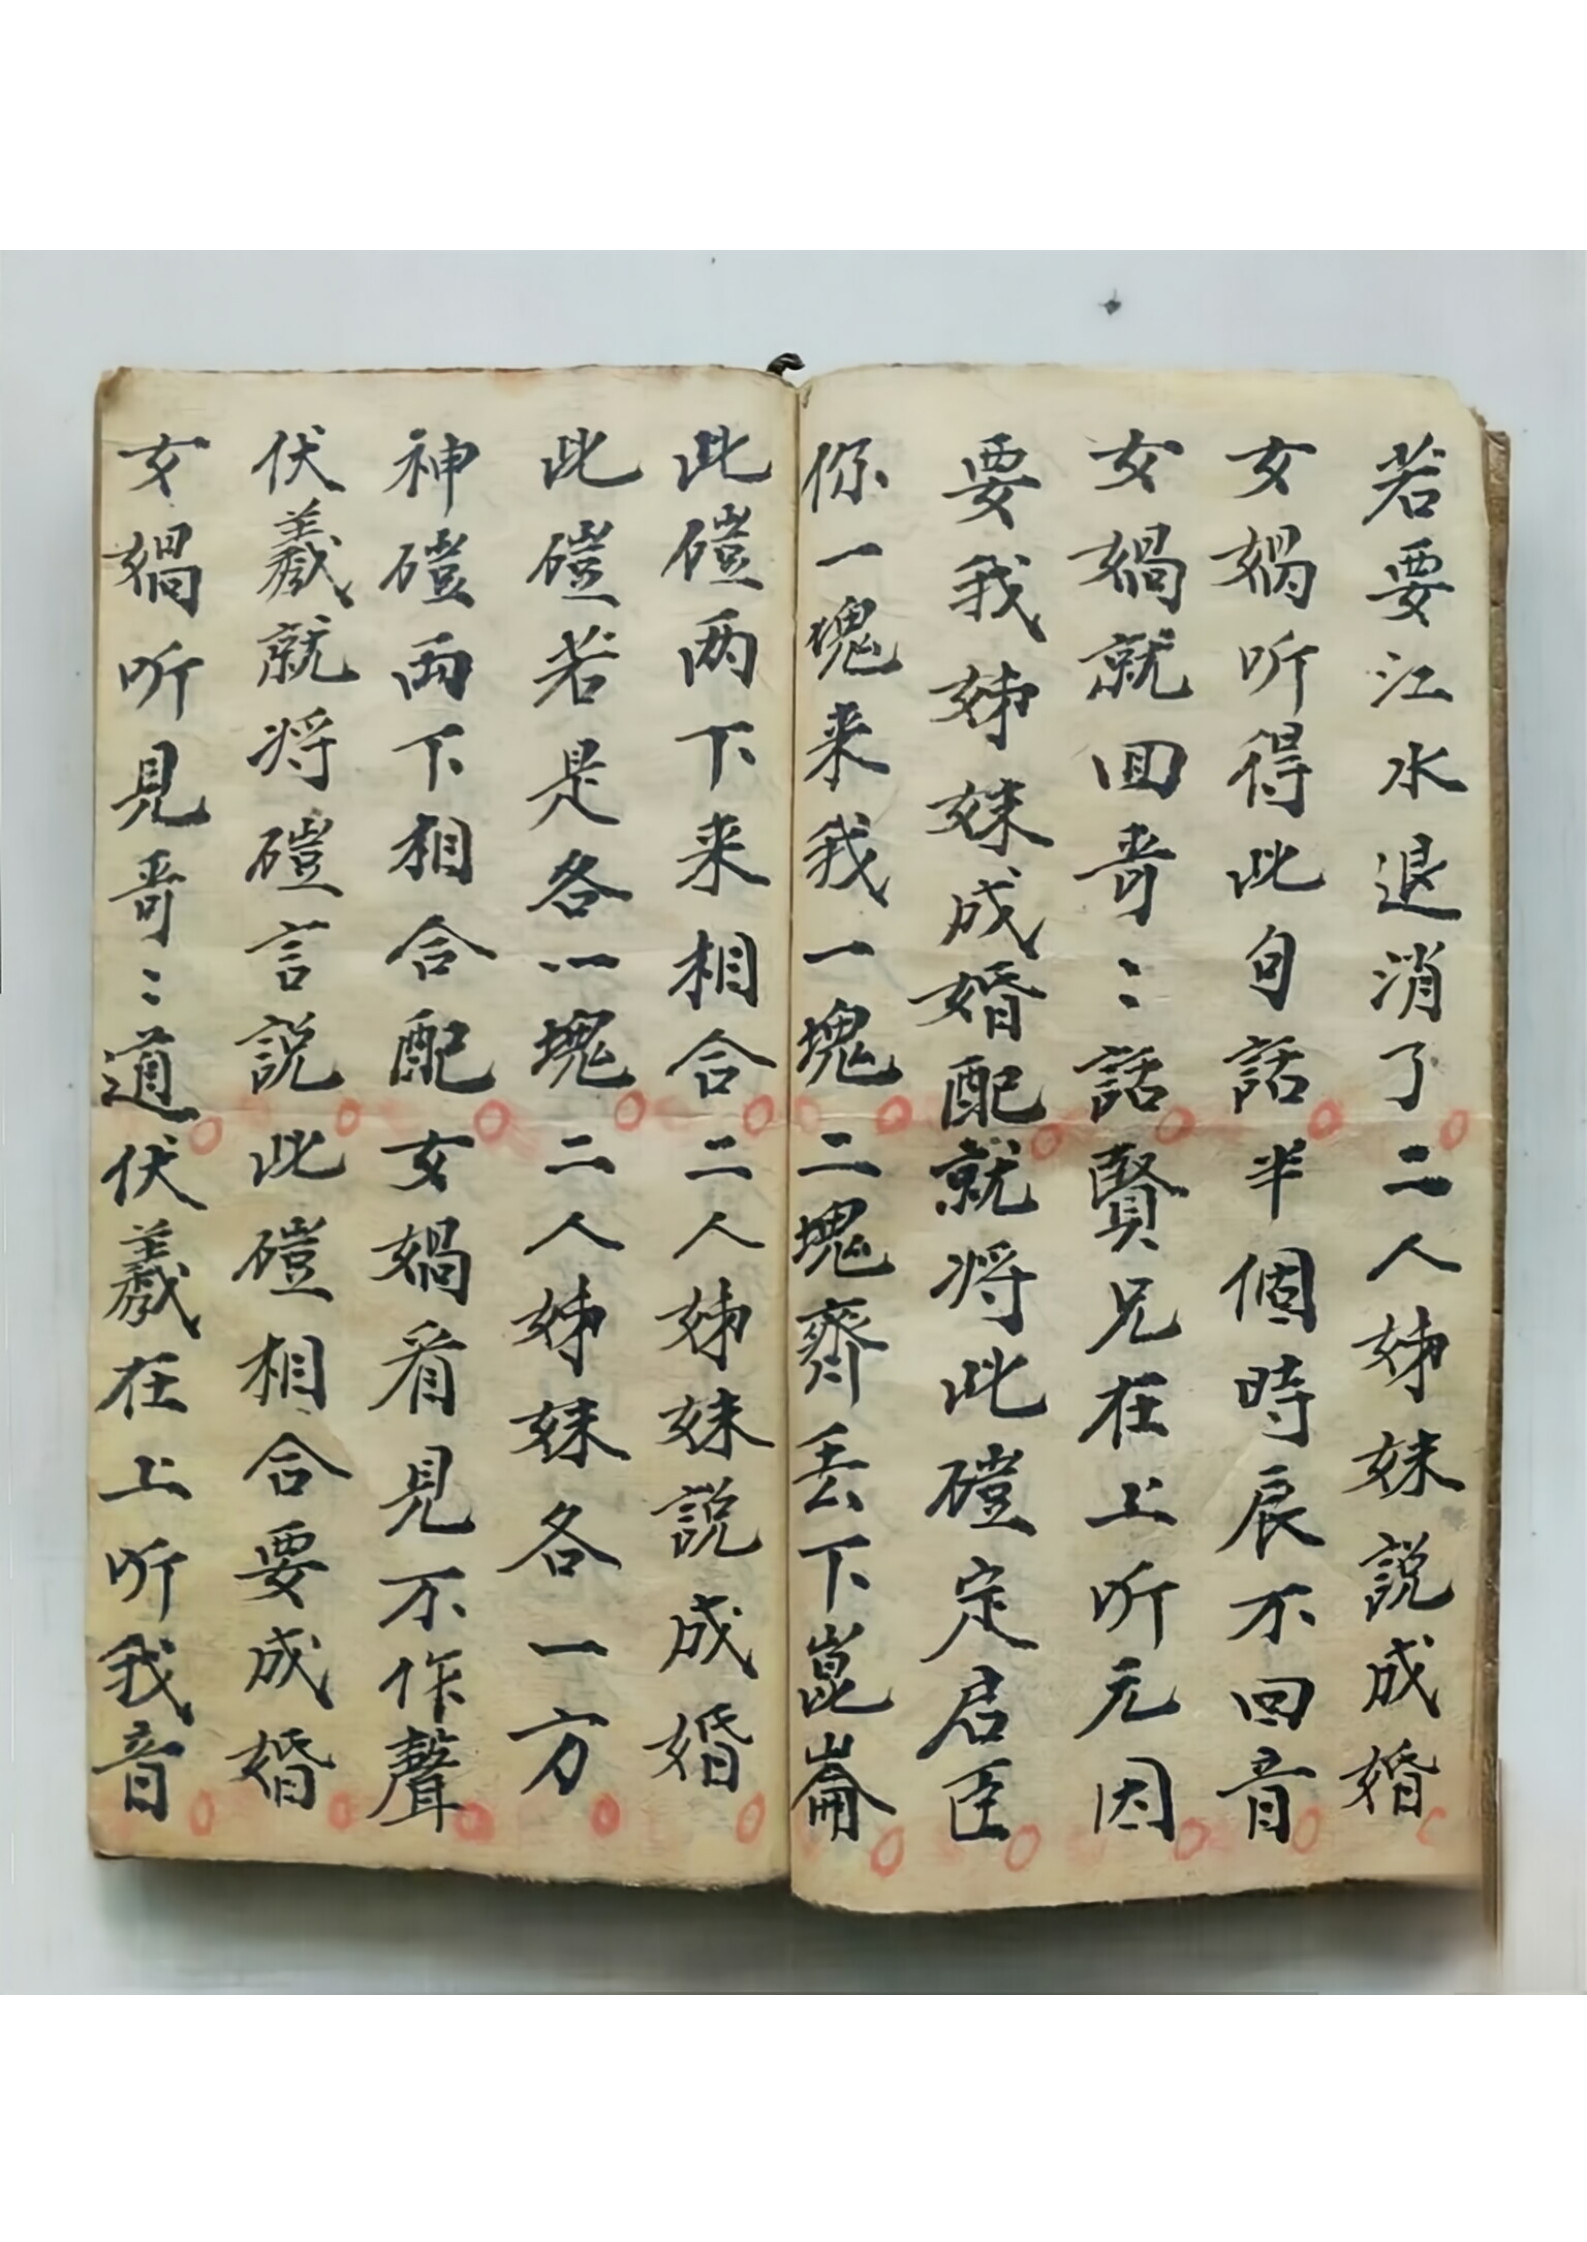 若要江水退消了二人姊妹説成婚
女媧听得此句話半個時辰不回音
女媧就回哥〻話賢兄在上听元因
要我姊妹成婚配就将此磑定君臣
你一塊来我一塊二塊齊丢下崑崙
此磑两下来相合二人姊妹説成婚
此磑若是各一塊二人姊妹各一方
神磑両下相合配女媧看見不作聲
伏羲就将磑言説此磑相合要成婚
女媧听見哥〻道伏羲在上听我音